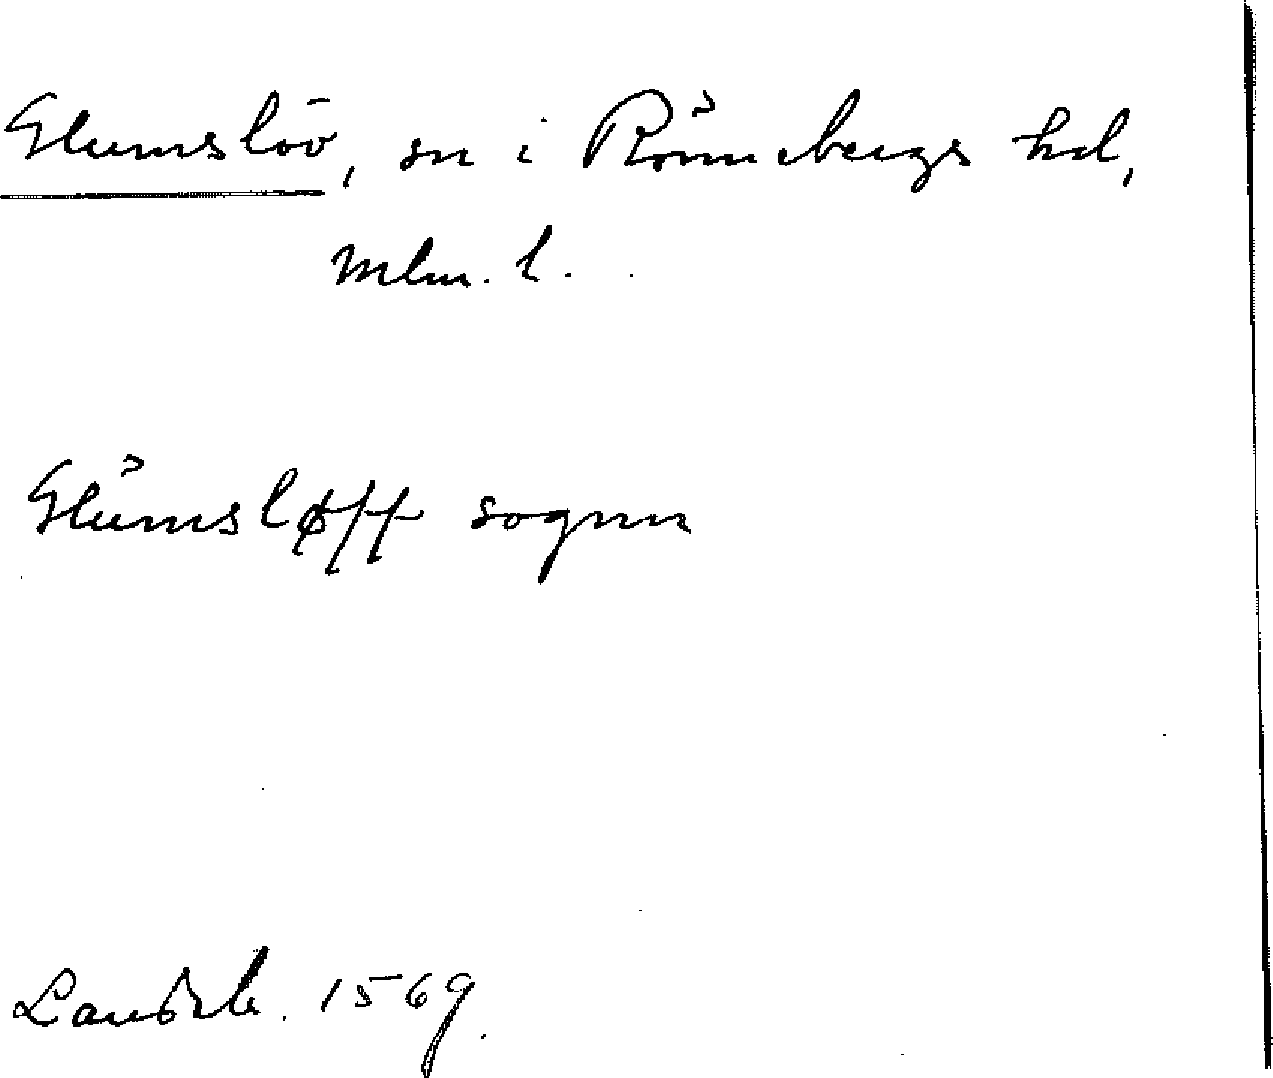 Glumslöv, sn i Rönnebergs hd,
Mlm. l.
Glůmsløff sognn
Landeb. 1569.